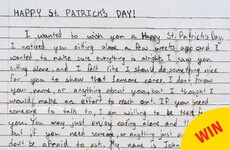 HAPPY ST. PATRICK'S DAY!
I wanted to wish you a Happy St. Patrick's Day.
I noticed you sitting alone a few weeks ago and I
wanted to make sure everything is alright. I saw you
sitting alone, and I felt like I should do something nice
for you to show that someone cares. I don't know
your name, or anything about you, but I thought I
would make an effort to reach out! If you need
someone to talk to, I am willing to be that
You may just enjoy eating alone and th
but if you need someone, or anything just a
don't be afraid to ask. My name is John
WIN